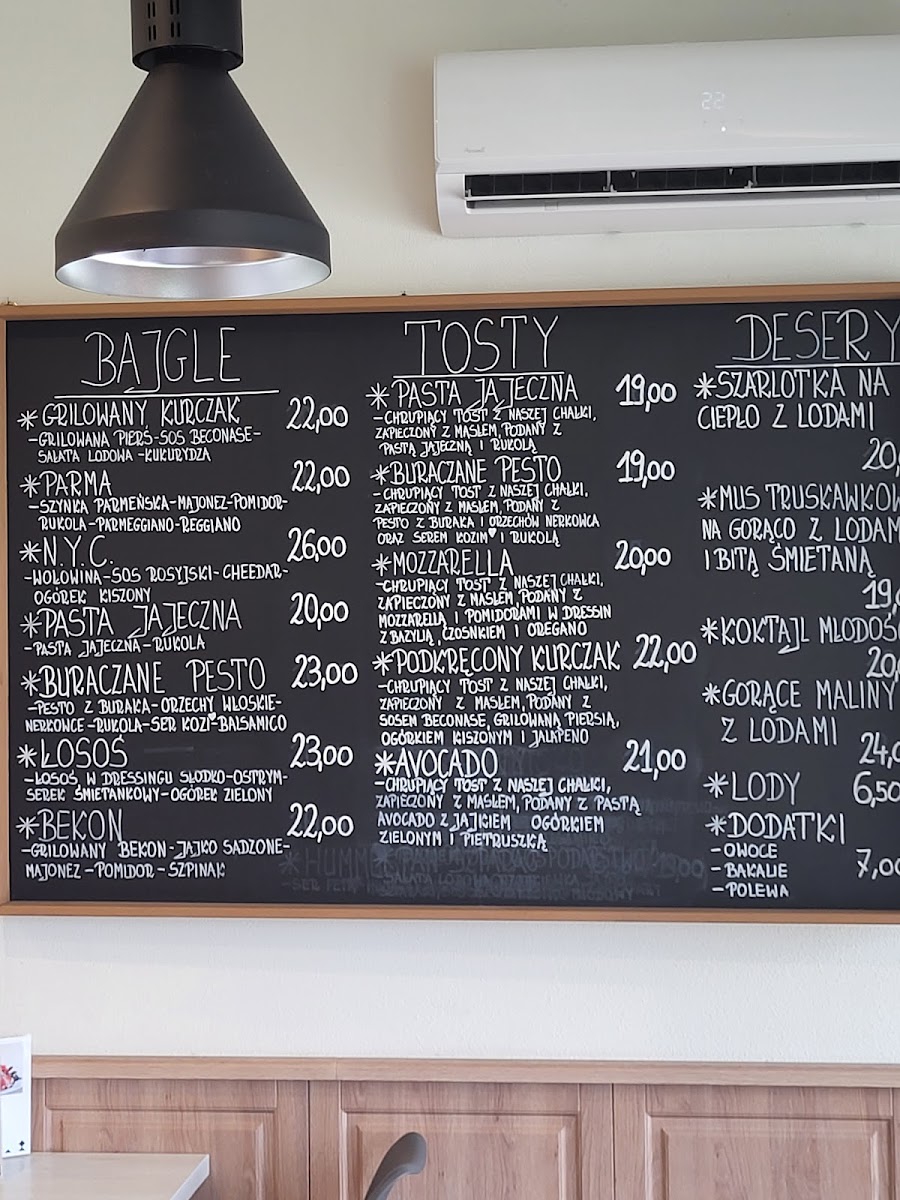 22
BAJGLE
* GRILOWANY KURCZAK 22,00
-GRILOWANA PIERŚ-SOS BECONASE-
SAŁATA LODOWA-KUKURYDZA
* PARMA 22,00
-SZYNKA PARMEŃSKA-MAJONEZ-POMIDOR-
RUKOLA-PARMEGGIANO-REGGIANO
* N.Y.C. 26,00
-WOŁOWINA-SOS ROSYJSKI-CHEEDAR-
OGÓREK KISZONY
* PASTA JAJECZNA 20,00
-PASTA JAJECZNA-RUKOLA
* BURACZANE PESTO 23,00
-PESTO Z BURAKA-ORZECHY WŁOSKIE-
NERKOWCE-RUKOLA-SER KOZI-BALSAMICO
* ŁOSOŚ 23,00
-ŁOSOŚ W DRESSINGU SŁODKO-OSTRYM-
SEREK ŚMIETANKOWY-OGÓREK ZIELONY
* BEKON 22,00
-GRILOWANY BEKON-JAJKO SADZONE-
MAJONEZ-POMIDOR-SZPINAK
TOSTY
* PASTA JAJECZNA 19,00
-CHRUPIĄCY TOST Z NASZEJ CHAŁKI,
ZAPIECZONY Z MASŁEM, PODANY Z
PASTĄ JAJECZNĄ I RUKOLĄ
* BURACZANE PESTO 19,00
-CHRUPIĄCY TOST Z NASZEJ CHAŁKI,
ZAPIECZONY Z MASŁEM, PODANY Z
PESTO Z BURAKA I ORZECHÓW NERKOWCA
ORAZ SEREM KOZIM I RUKOLĄ
* MOZZARELLA 20,00
-CHRUPIĄCY TOST Z NASZEJ CHAŁKI,
ZAPIECZONY Z MASŁEM, PODANY Z
MOZZARELLĄ I POMIDORAMI W DRESSIN
Z BAZYLIĄ, CZOSNKIEM I OREGANO
* PODKRĘCONY KURCZAK 22,00
-CHRUPIĄCY TOST Z NASZEJ CHAŁKI,
ZAPIECZONY Z MASŁEM, PODANY Z
SOSEM BECONASE, GRILOWANĄ PIERSIĄ,
OGÓRKIEM KISZONYM I JALAPENO
* AVOCADO 21,00
-CHRUPIĄCY TOST Z NASZEJ CHAŁKI,
ZAPIECZONY Z MASŁEM, PODANY Z PASTĄ
AVOCADO Z JAJKIEM OGÓRKIEM
ZIELONYM I PIETRUSZKĄ
DESERY
* SZARLOTKA NA
CIEPŁO Z LODAMI
20,
* MUS TRUSKAWKOW
NA GORĄCO Z LODAM
I BITĄ ŚMIETANĄ
19,
* KOKTAJL MŁODOŚ
20,
* GORĄCE MALINY
Z LODAMI
24,0
* LODY 6,50
* DODATKI
-OWOCE
-BAKALIE 7,00
-POLEWA